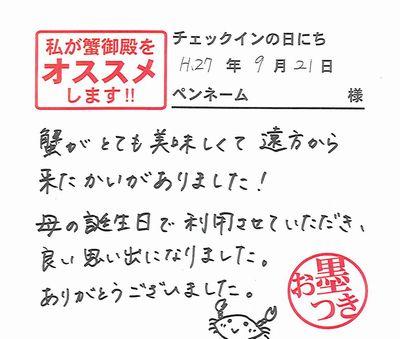 私が蟹御殿を
オススメ
します!!
チェックインの日にち
H.27 年 9 月 21 日
ペンネーム 様
蟹がとても美味しくて遠方から
来たかいがありました!
母の誕生日で利用させていただき、
良い思い出になりました。
ありがとうございました。
お墨つき